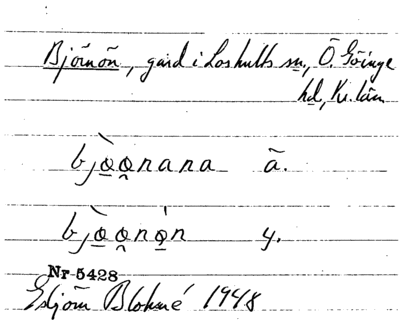 Björnön, gård i Loshults sn, Ö. Göinge
hd, Kr. län
bjò̱o̯nana ä.
bjò̱o̯nò̱n y.
Nr 5428
Blohmé 1948